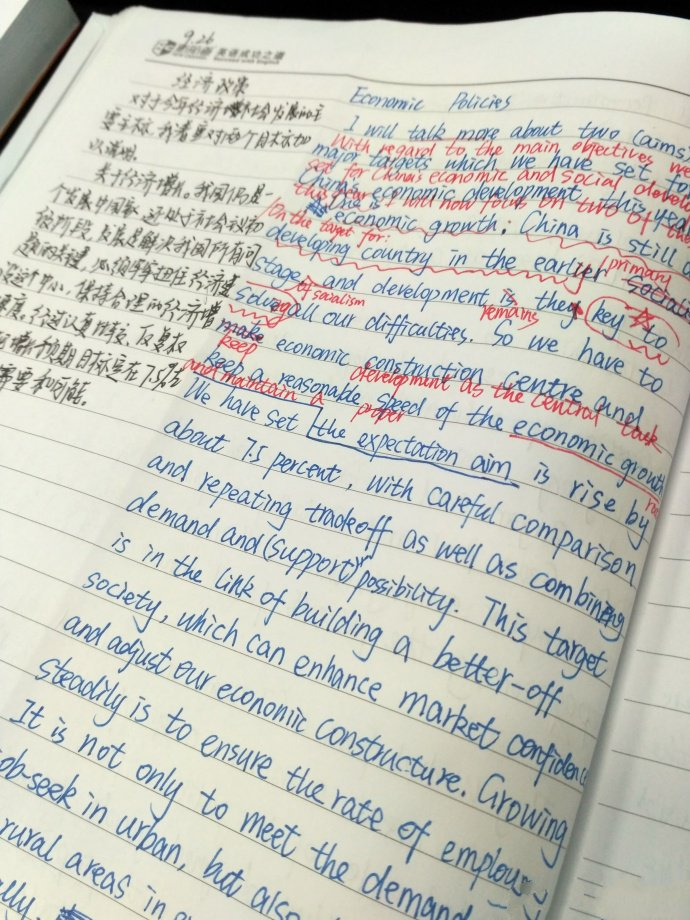 9.26
英语成功之道
经济政策
对于今年经济和社会发展的主
要目标，我着重对两个目标加
以说明。
关于经济增长。我国仍是一
个发展中国家，还处于社会主义初
级阶段，发展是解决我国所有问
题的关键，必须牢牢扭住经济建
设这个中心，保持合理的经济增
速度。经过认真比较、反复权
增长预期目标定在7.5%
需要和可能。
Economic Policies
I will talk more about two (aims)
With regard to the main objectives we
major targets which we have set for
set for China's economic and social develo
China's economic development this year
this year I will now focus on two of the
One is economic growth: China is still a
On the target for:
developing country in the earlier socialis
primary
stage, and development is the key to
of socialism
remains
solve all our difficulties. So we have to
make economic construction centre and
keep
development as the central task
keep a reasonable speed of the economic growth
and maintain a
proper
We have set the expectation aim is rise by
about 7.5 percent, with careful comparison
and repeating tradeoff as well as combining
demand and (support) possibility. This target
is in the link of building a better-off
society, which can enhance market confidence
and adjust our economic constructure. Growing
steadily is to ensure the rate of employ
It is not only to meet the demand
job-seek in urban, but also
rural areas in